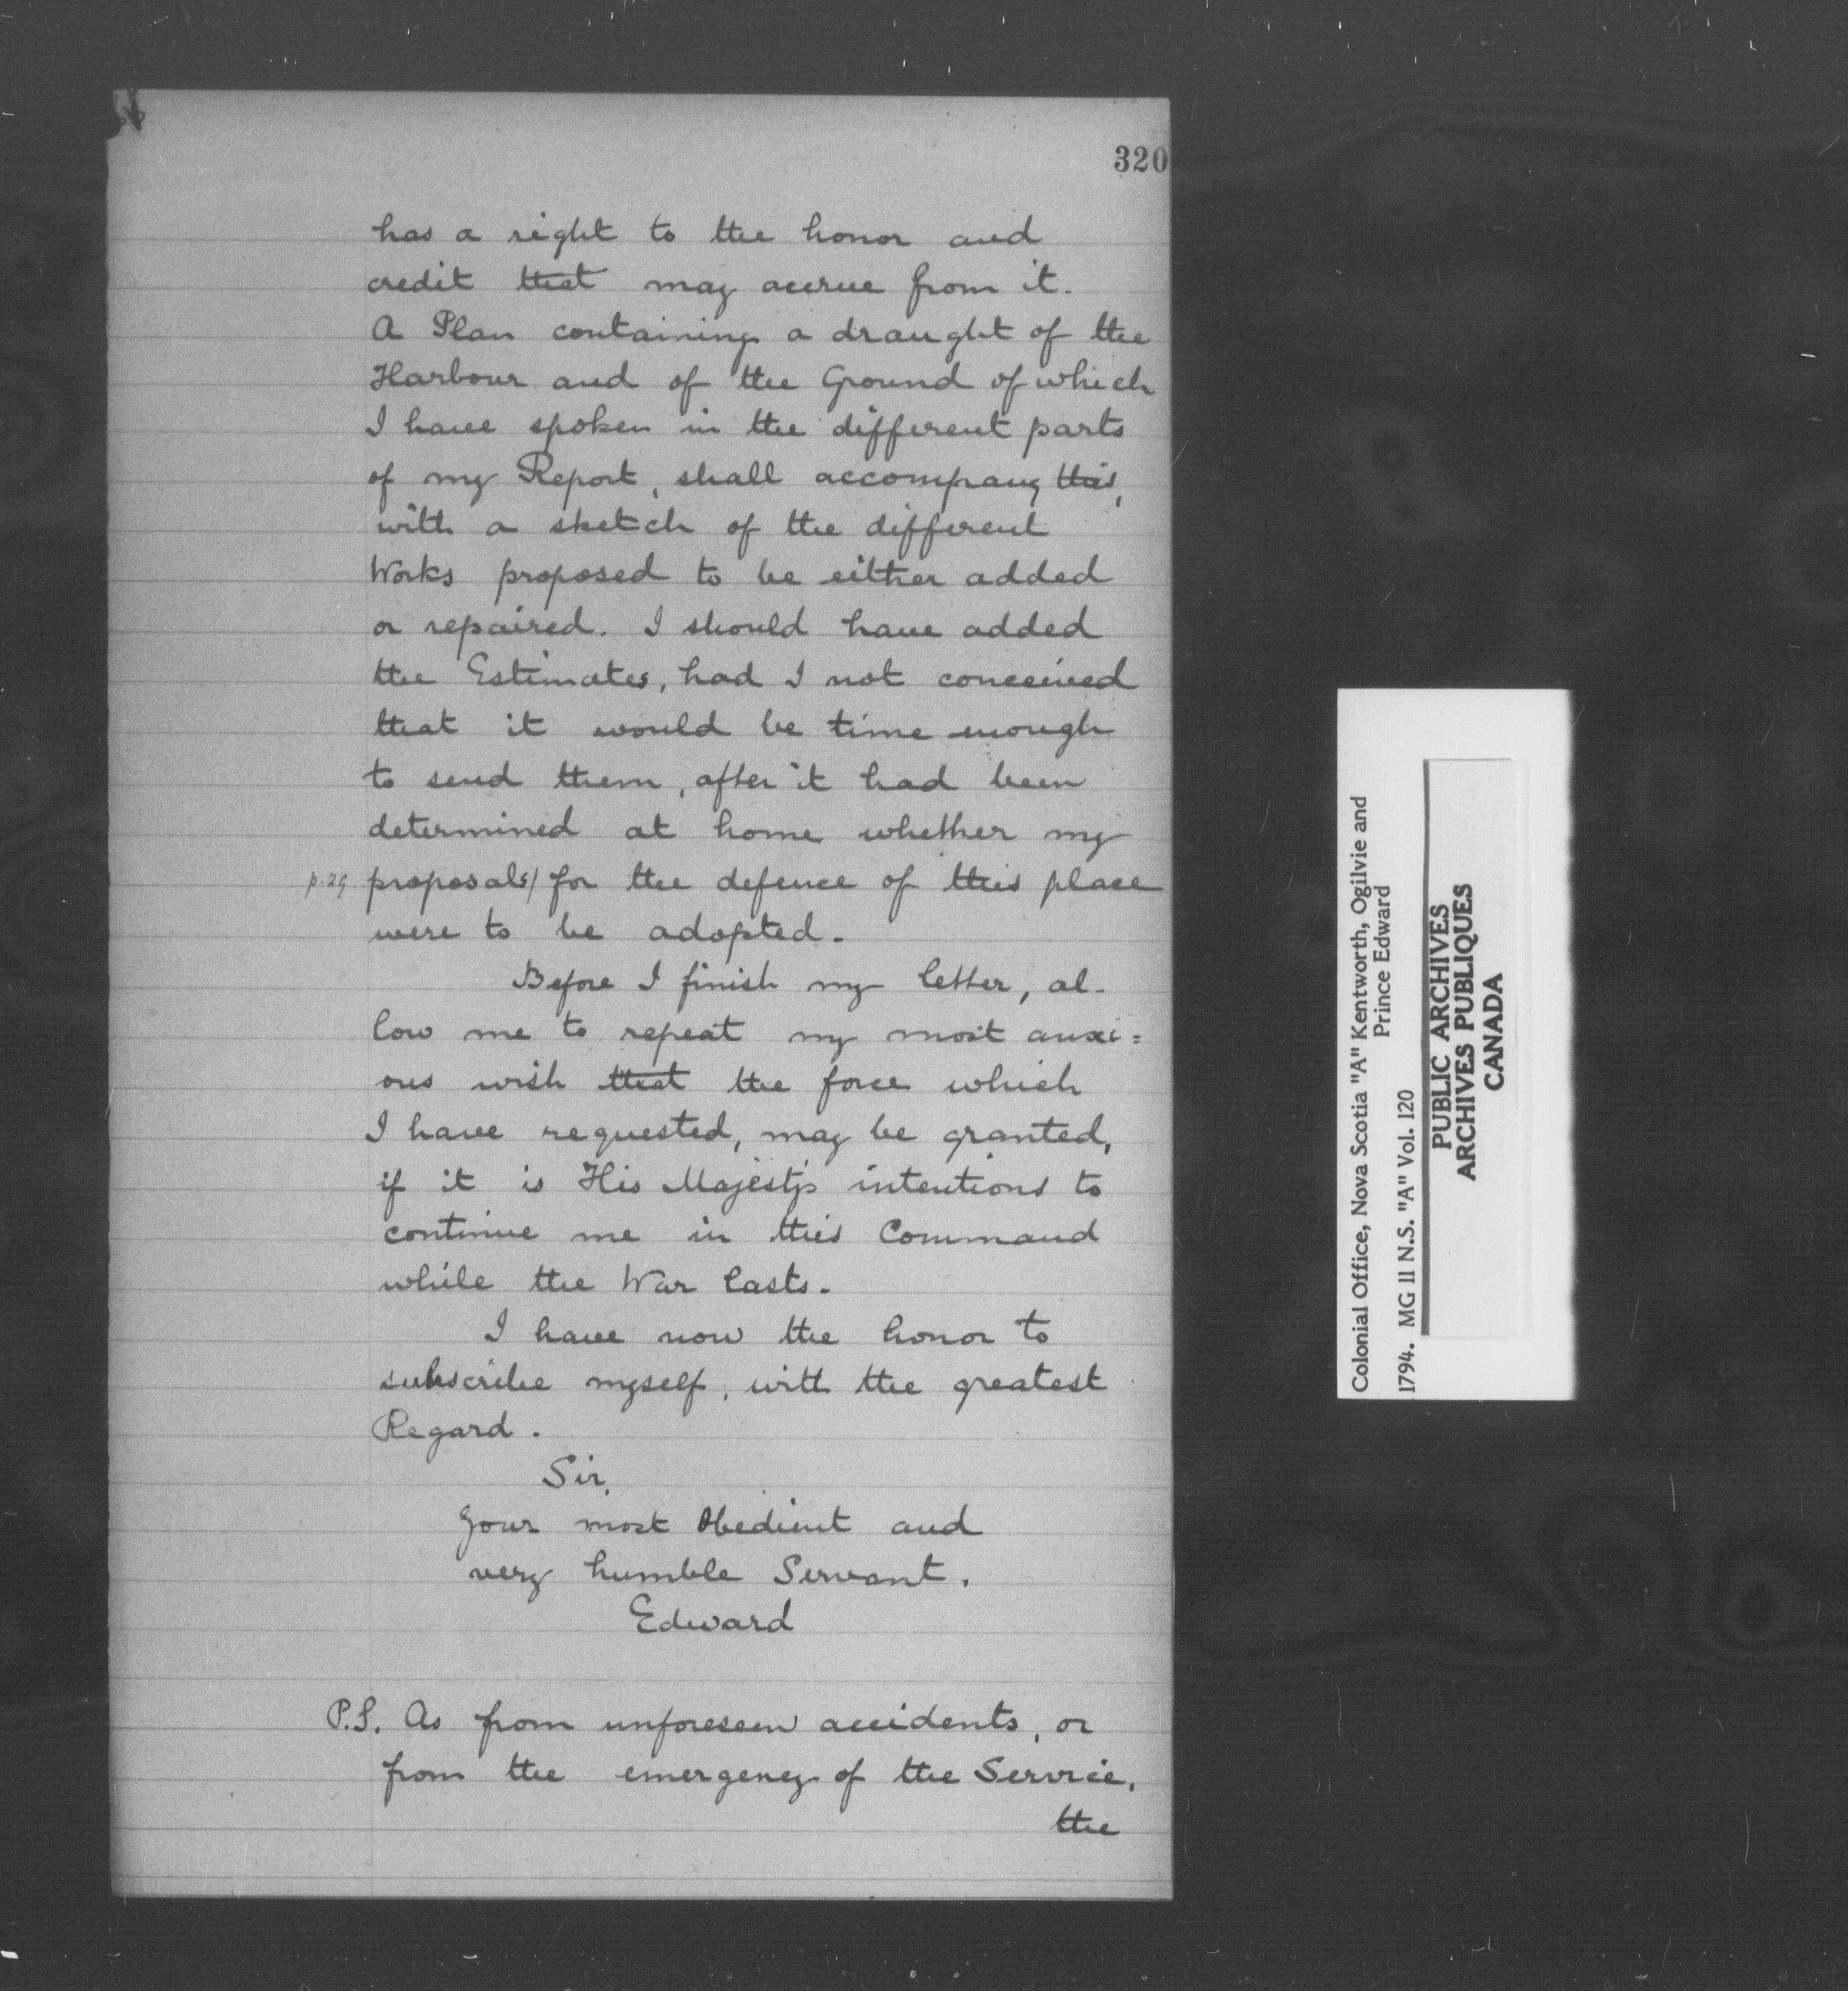 320
has a right to the honor and
credit that may accrue from it.
A Plan containing a draught of the
Harbour and of the Ground of which
I have spoken in the different parts
of my Report, shall accompany this,
with a sketch of the different
Works proposed to be either added
or repaired. I should have added
the Estimates, had I not conceived
that it would be time enough
to send them, after it had been
determined at home whether my
p.29. proposals/ for the defence of this place
were to be adopted.
Before I finish my letter, al-
low me to repeat my most anxi=
ous wish that the force which
I have requested, may be granted,
if it is His Majesty's intentions to
continue me in this Command
while the War lasts.
I have now the honor to
subscribe myself, with the greatest
Regard.
Sir,
Your most Obedient and
very humble Servant.
Edward
P.S. As from unforeseen accidents, or
from the emergency of the Service,
the
Colonial Office, Nova Scotia "A" Kentworth, Ogilvie and
Prince Edward
1794. MG 11 N.S. "A" Vol. 120
PUBLIC ARCHIVES
ARCHIVES PUBLIQUES
CANADA